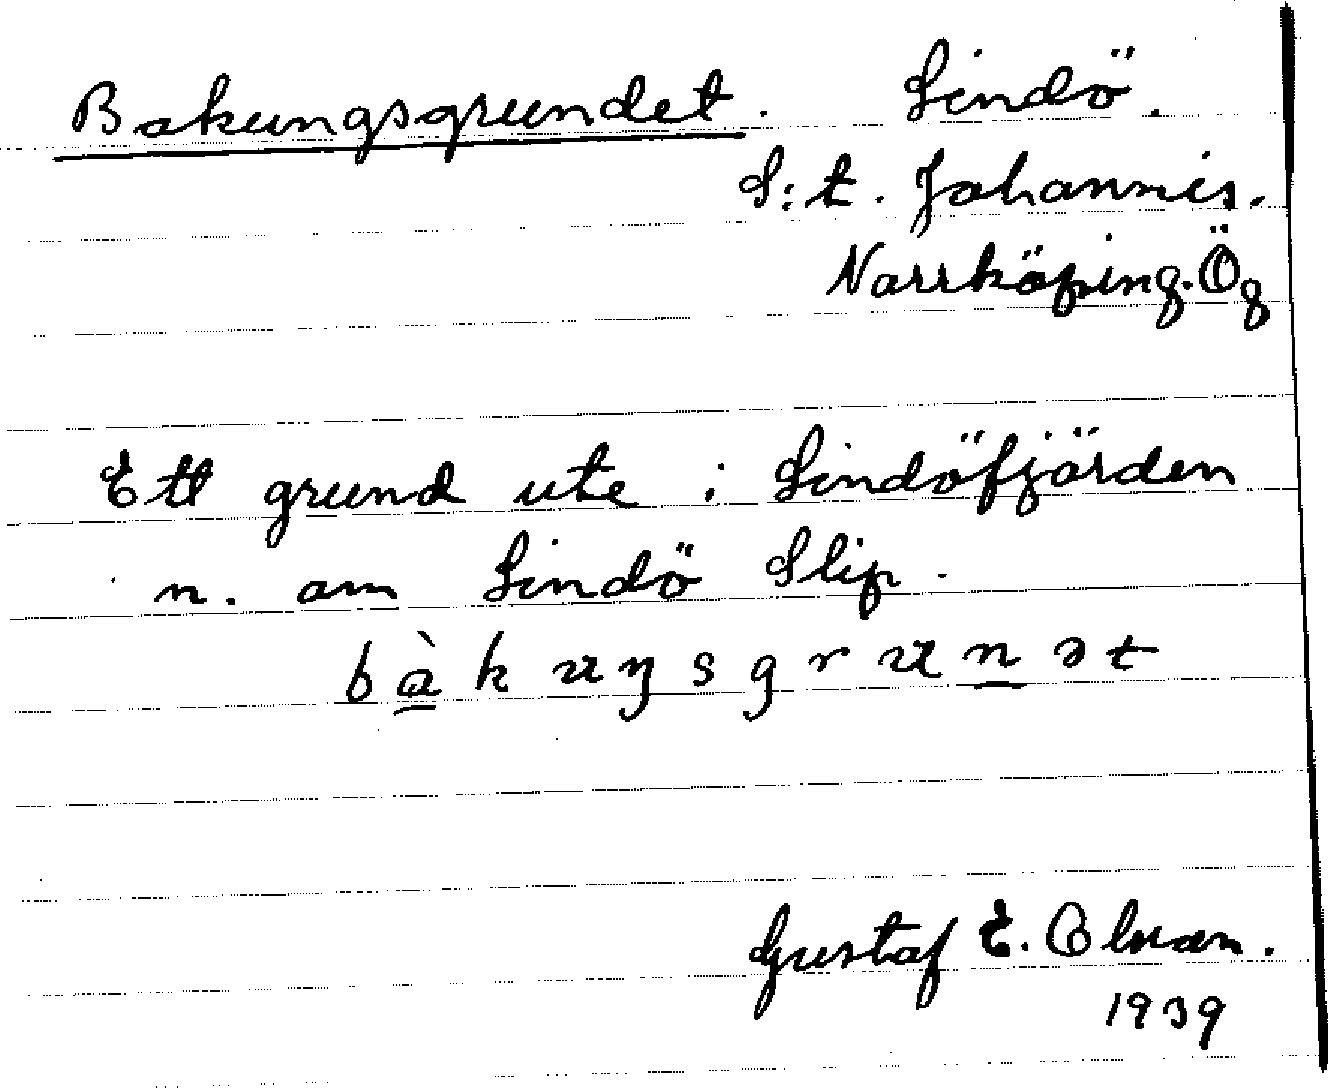 Bakungsgrundet. Lindö.
S:t. Johannis.
Norrköping. Ög
Ett grund ute i Lindöfjärden
n. om Lindö Slip.
bàkuŋsgrunət
Gustaf E. Olson.
1939